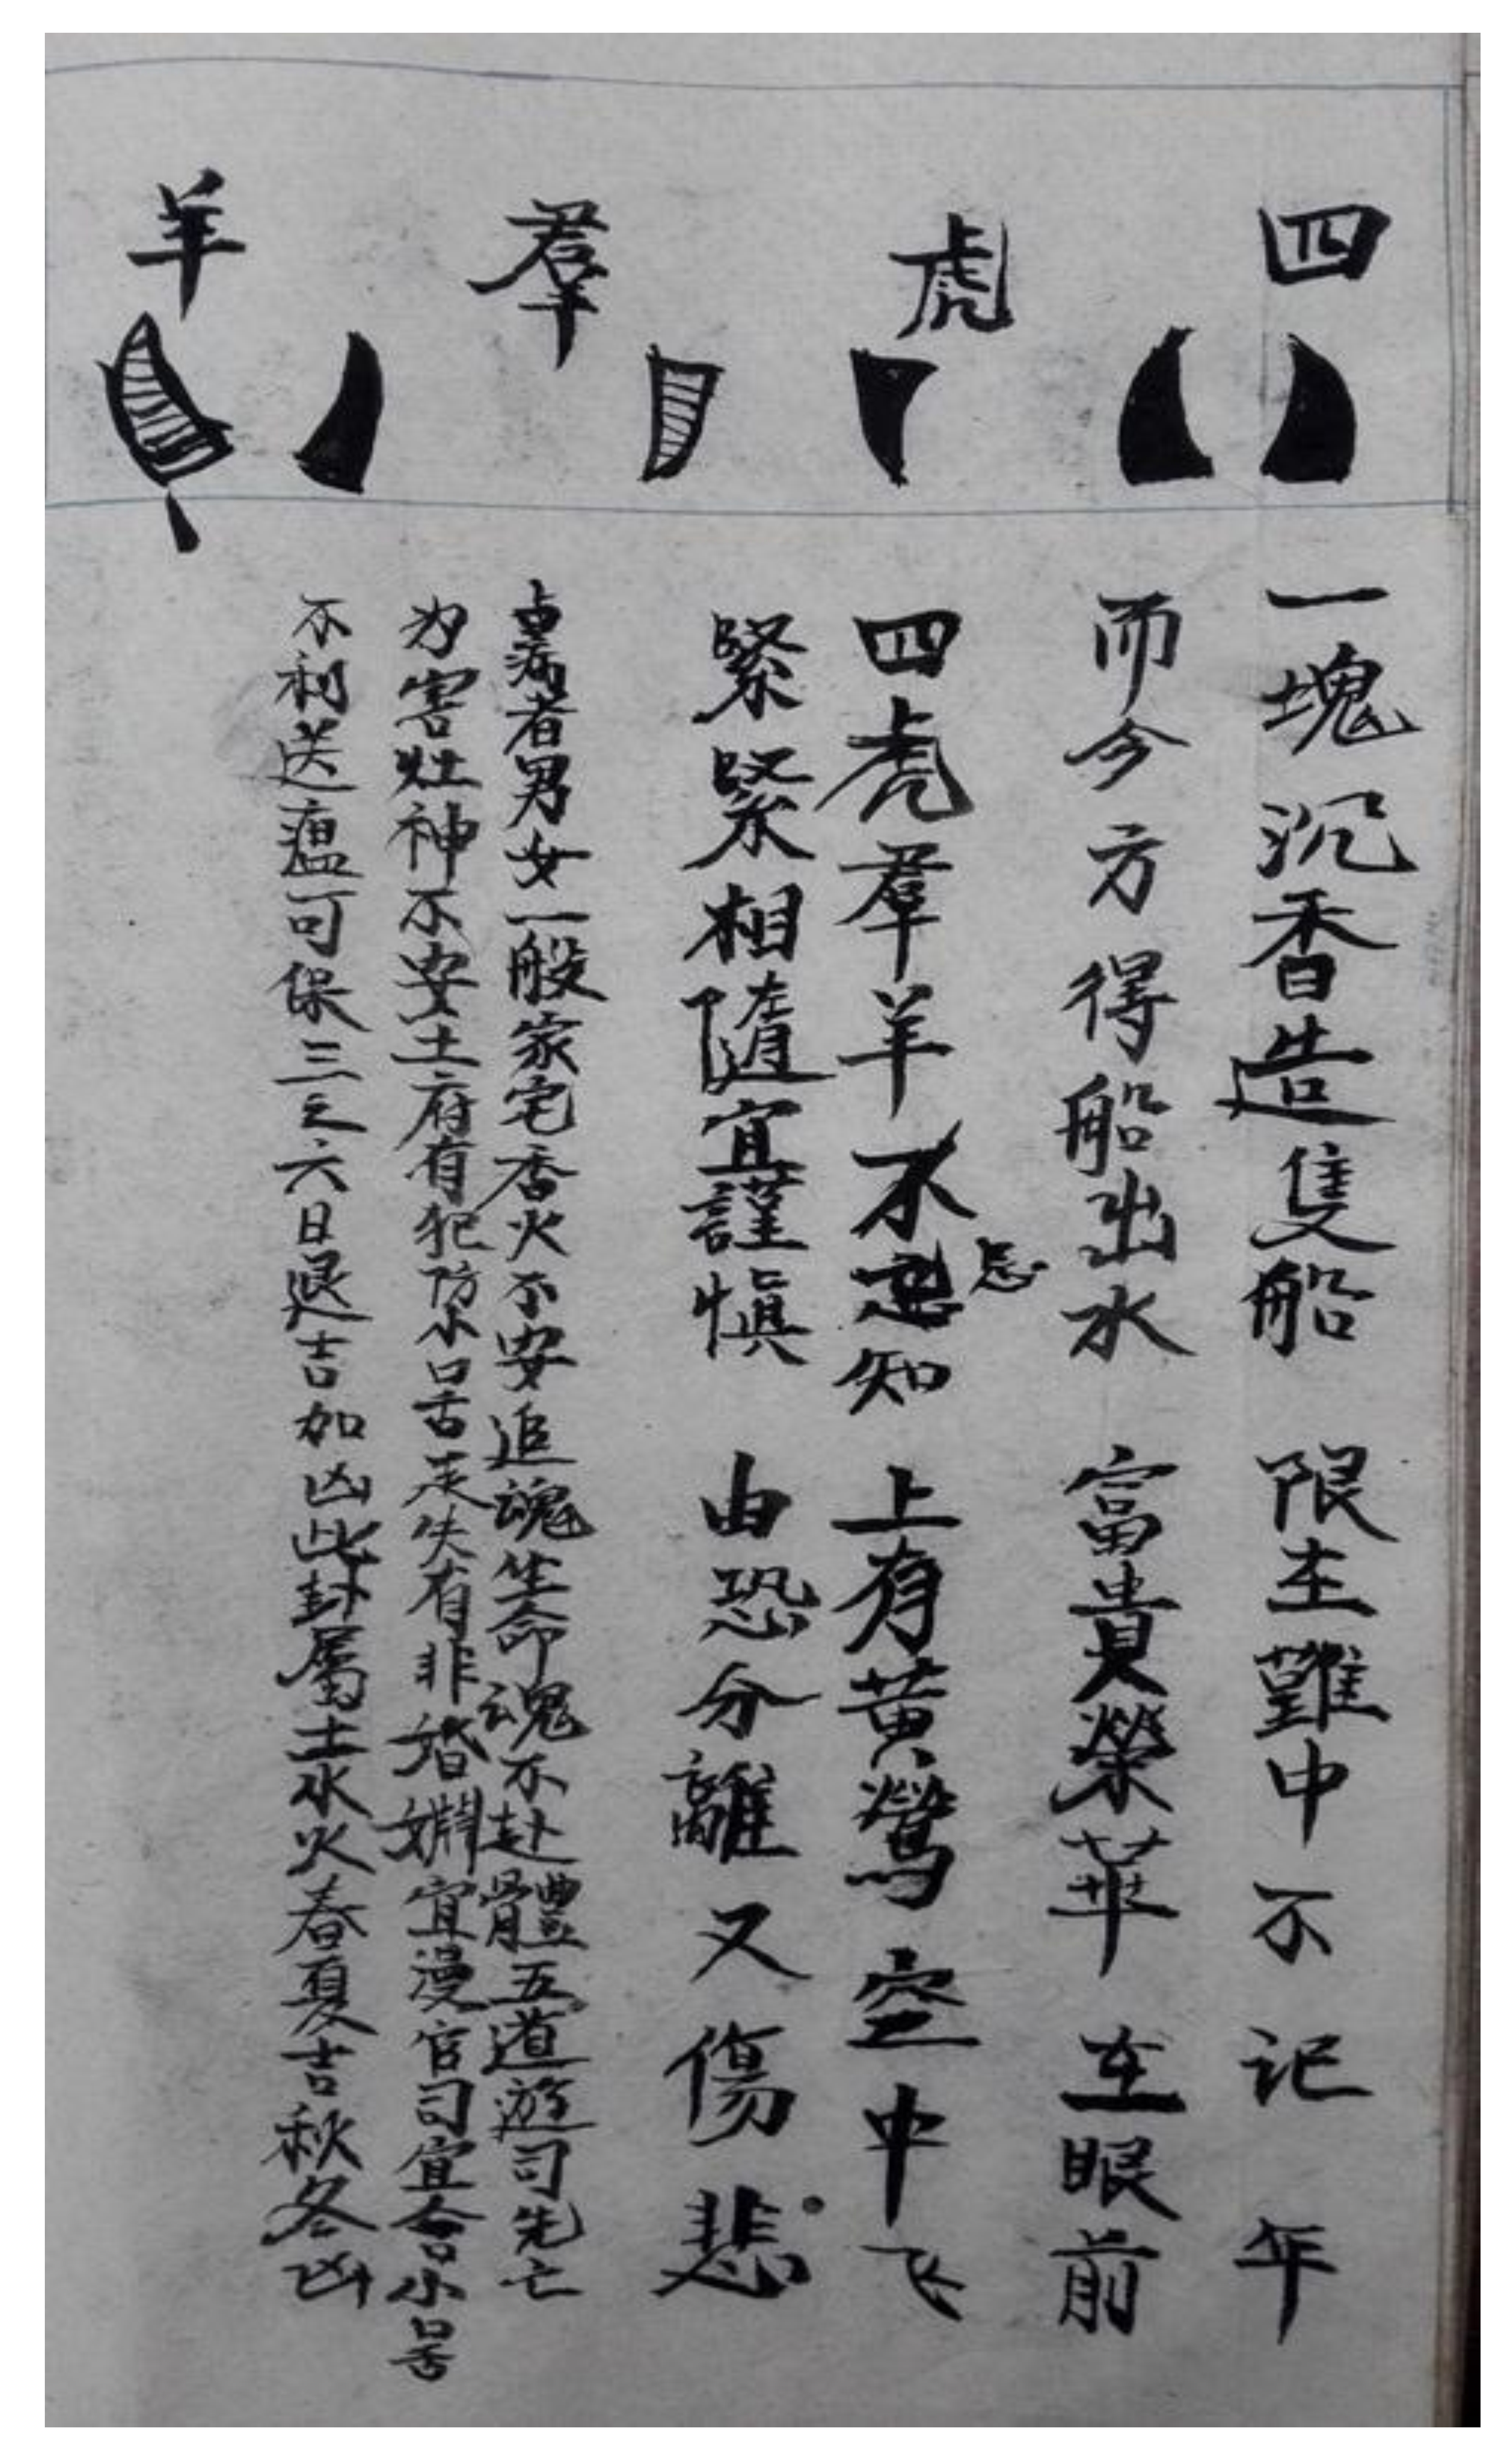 四虎羣羊
一塊沉香造隻船 限在難中不记年
而今方得船出水 富貴榮華在眼前
四虎羣羊不忌知 上有黄鶯空中飞
忌
緊緊相隨宜謹慎 由恐分離又傷悲
占病者男女一般家宅香火不安追魂生命魂不赴體五道遊司先亡
为害灶神不安土府有犯防小口舌走失有非婚姻宜漫官司宜合小口舌
不利送瘟可保三之六日退吉如凶此卦屬土水火春夏吉秋冬凶